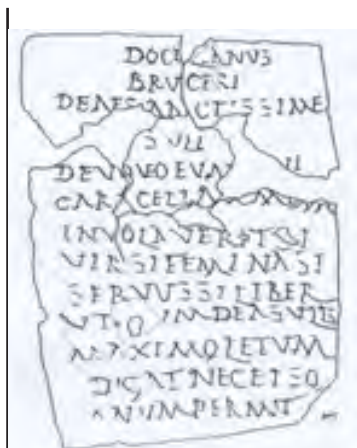 DOCILIANVS
BRVCERI
DEAESANCTISSIME
SVLI
DEVOVEO
CARACELLA
INVOLAVERITSI
VIRSIFEMINASI
SERVVSSILIBER
DEASVLIS
MAXIMOLETVM
DIGATNECEISO
NVMPERMIT